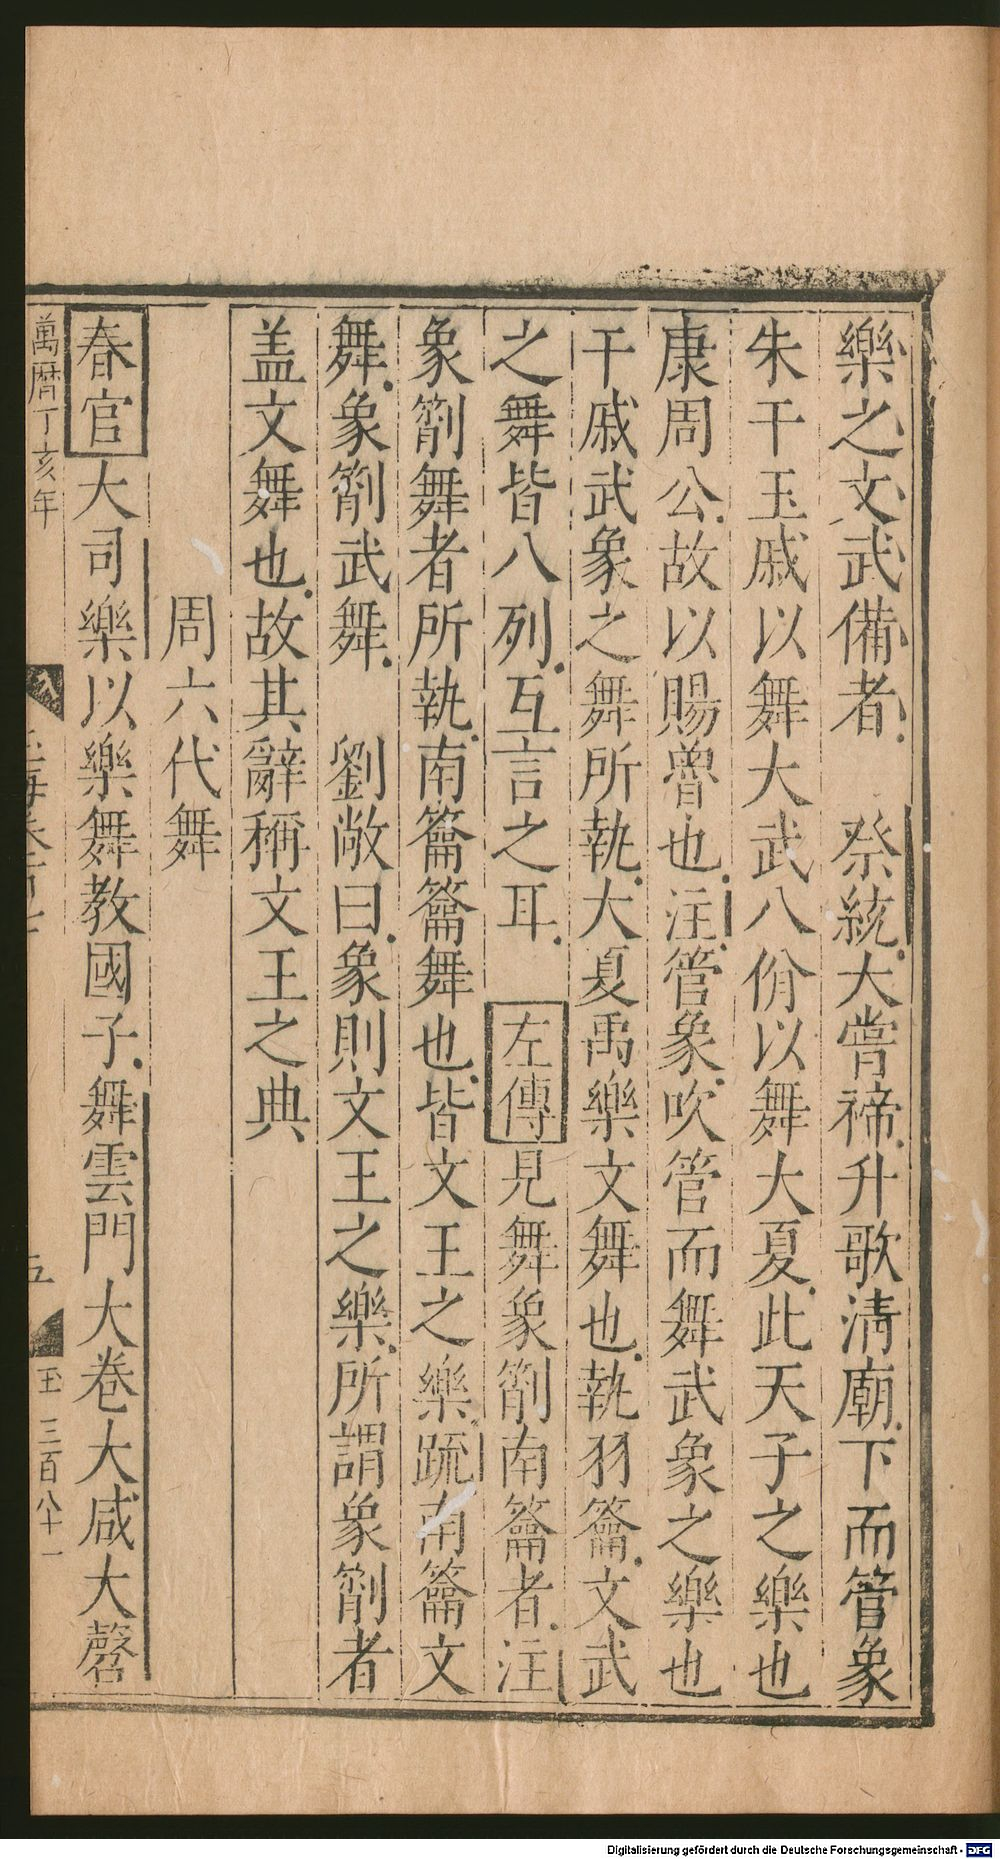 樂之文武備者　祭統大嘗禘升歌清廟下而管象
朱干玉戚以舞大武八佾以舞大夏此天子之樂也
康周公故以賜魯也注管象吹管而舞武象之樂也
干戚武象之舞所執大夏禹樂文舞也執羽籥文武
之舞皆八列互言之耳　左傳見舞象箾南籥者注
象箾舞者所執南籥籥舞也皆文王之樂䟽南籥文
舞象箾武舞　劉敞曰象則文王之樂所謂象箾者
盖文舞也故其辭稱文王之典
周六代舞
春官大司樂以樂舞教國子舞雲門大卷大咸大磬
萬曆丁亥年
五
玉三百八十一
Digitalisierung gefördert durch die Deutsche Forschungsgemeinschaft - DFG